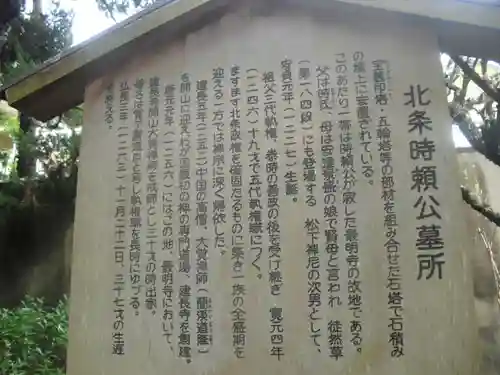 北条時頼公墓所
宝篋印塔・五輪塔等の部材を組み合せた石塔で石積み
の壇上に安置されている。
このあたり一帯は時頼公が寂した最明寺の故地である。
父は時氏、母は安達景盛の娘で賢母と言われ 徒然草
(第一八四段)にも登場する 松下禅尼の次男として、
安貞元年(一二二七)生誕。
祖父三代執権、泰時の善政の後を受け継ぎ 寛元四年
(一二四六)十九才で五代執権職につく。
ますます北条政権を強固たるものに築き一族の全盛期を
迎える一方では禅宗に深く帰依した。
建長五年(一二五三)中国の高僧、大覚禅師(蘭溪道隆)
を開山に迎えわが国最初の禅の専門道場、建長寺を創建。
康元元年(一二五六)にはこの地、最明寺において、
建長寺開山大覚禅師を戒師とし三十才の時出家、
号は覚了房道崇と称し執権職を長時にゆづる。
弘長三年(一二六三)十一月二十二日、三十七才の生涯
を終える。